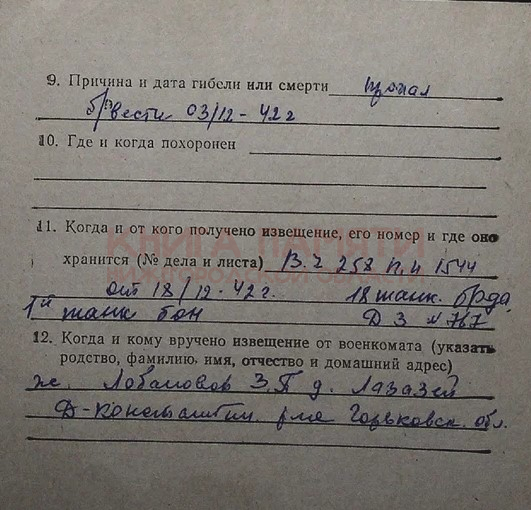 9. Причина и дата гибели или смерти пропал
б/вести 03/12-42 г
10. Где и когда похоронен
11. Когда и от кого получено извещение, его номер и где оно
хранится (№ дела и листа) В.ч 258 п.п 1544
от 18/12-42 г. 18 танк. брда
1й танк бон Д 3 № 767
12. Когда и кому вручено извещение от военкомата (указать
родство, фамилию, имя, отчество и домашний адрес)
ж. Лобановов З.П д. Лазазей
Д-Константин. р-на Горьковск. обл.
КНИГА ПАМЯТИ
НИЖЕГОРОДСКОЙ ОБЛАСТИ